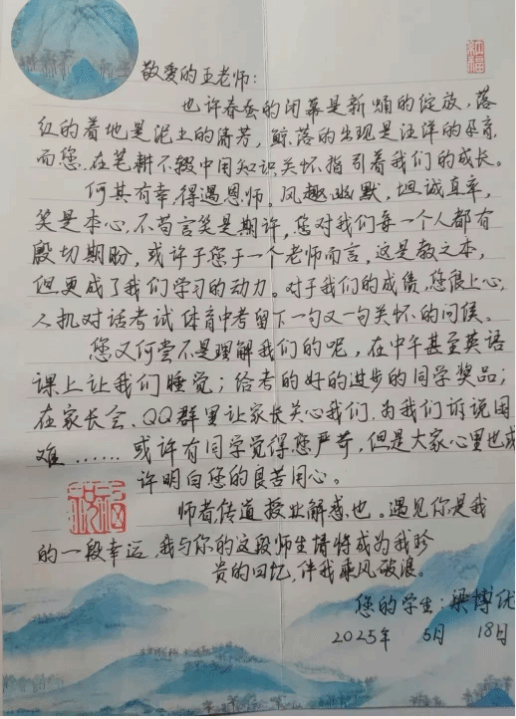 敬爱的王老师：
也许春蚕的闭幕是新蛹的绽放，落
红的着地是泥土的清芳，鲸落的出现是汪洋的孕育，
而您，在笔耕不辍中用知识关怀指引着我们的成长。
何其有幸，得遇恩师。风趣幽默，坦诚真率，
笑是本心，不苟言笑是期许，您对我们每一个人都有
殷切期盼，或许于您于一个老师而言，这是教之本，
但更成了我们学习的动力。对于我们的成绩，您很上心，
人机对话考试体育中考留下一句又一句关怀的问候。
您又何尝不是理解我们的呢，在中午甚至英语
课上让我们睡觉；给考的好的进步的同学奖品；
在家长会、QQ群里让家长关心我们，为我们诉说困
难……或许有同学觉得您严苛，但是大家心里也或
许明白您的良苦用心。
师者，传道授业解惑也。遇见你是我
的一段幸运，我与你的这段师生情将成为我珍
贵的回忆，伴我乘风破浪。
您的学生：梁博优
2025年 5月 18日